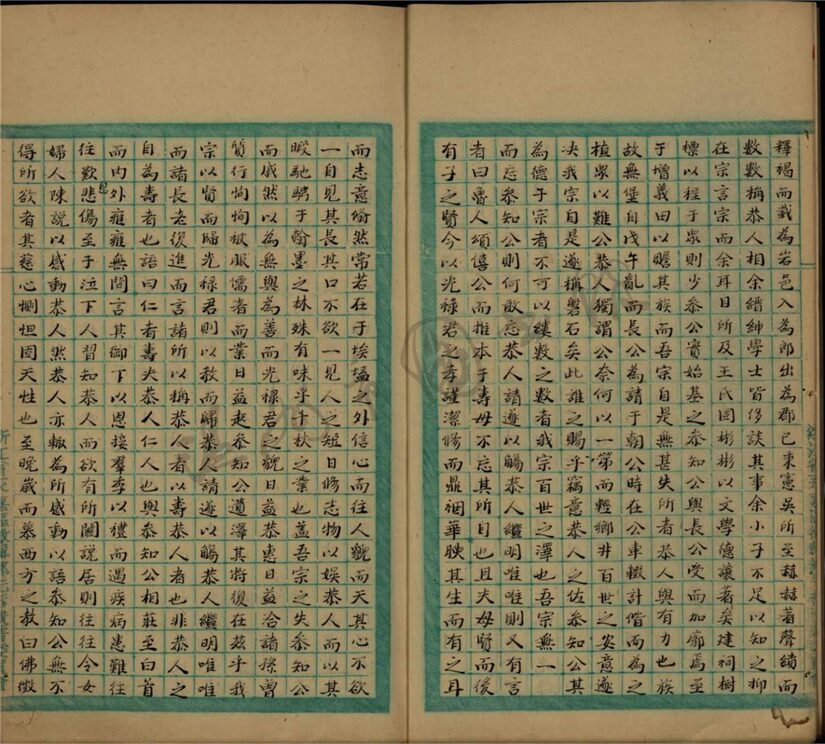 釋褐而蒞為若邑入為郎出為郡已秉憲吳所至赫赫著聲績而
數數稱恭人相余縉紳學士皆侈談其事余小子不足以知之抑
在宗言宗而余耳目所及王氏固彬彬以文學德讓者矣建祠樹
標以程于眾則少參公實始基之參知公與長公受而加廓焉至
于增義田以贍其族而吾宗自是無甚失所者恭人與有力也族
故無堡自戊午亂而長公為請于朝公時在公車轍計偕而為之
植眾以難公恭人獨謂公奈何以一第而輕鄉井百世之安意遂
决我宗自是遂稱磐石矣此誰之賜乎竊意恭人之佐參知公其
為德于宗者不可以縷數之數者我宗百世之澤也吾宗無一
而忘參知公則何敢忘恭人請遂以觴恭人繼明唯唯則又有言
者曰魯人頌僖公而推本于壽母不忘其所自也且夫母賢而後
有子之賢今以光祿君之孝謹潔脩而鼎禂華映其生而有之耳
而志意翛然常若在于埃壒之外信心而往人貌而天其心不欲
一自見其長其口不欲一見人之短日脩志物以娛恭人而以其
暇馳騁于翰墨之林殊有味乎千秋之業也蓋吾宗之失參知公
而戚然以為無與為善而光祿君之貌日益恭惠日益洽諸孫曾
質行恂恂被服儒者而業日益起參知公遺澤其將復在茲乎我
宗以賢而歸光祿君則以教而歸恭人請遂以觴恭人繼明唯唯
而諸長老復進而言諸所以稱恭人者以壽恭人者也非恭人之
自為壽者也語曰仁者壽夫恭人仁人也與參知公相莊至白首
而内外雍雍無間言其御下以恩接羣季以禮而遇疾病患難往
往歎悲傷至于泣下人習知恭人而欲有所關說居則往往令女
婦人陳說以感動恭人然恭人亦輒為所感動以語參知公無不
得所欲者其慈心惻怛固天性也至晚歲而慕西方之教曰佛徵